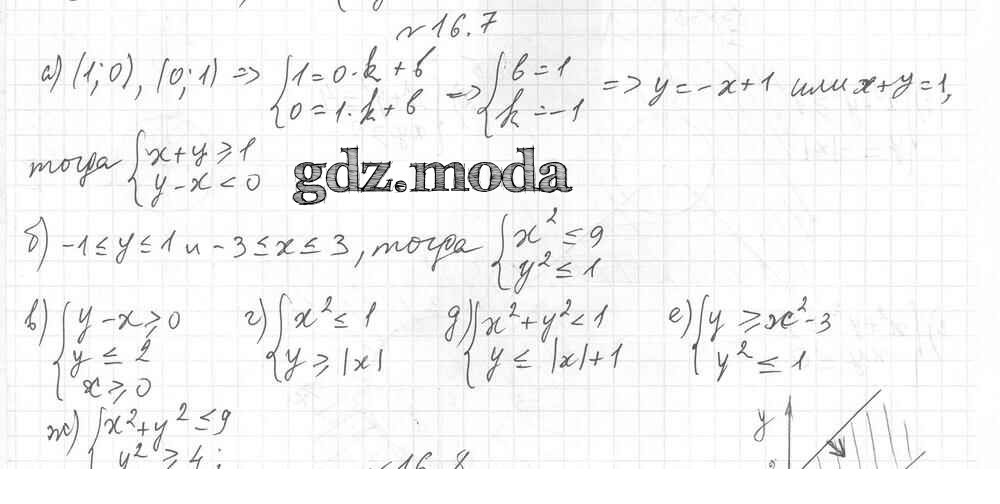 №16.7
а) (1;0), (0;1) => {1=0·k+b 0=1·k+b => {b=1 k=-1 => y=-x+1 или x+y=1,
тогда {x+y≥1 y-x<0
gdz.moda
б) -1≤y≤1 и -3≤x≤3, тогда {x²≤9 y²≤1
в) {y-x≥0 y≤2 x≥0 г) {x²≤1 y≥|x| д) {x²+y²<1 y≤|x|+1 е) {y≥x²-3 y²≤1
ж) {x²+y²≤9 y²≥4;
№16.8
y